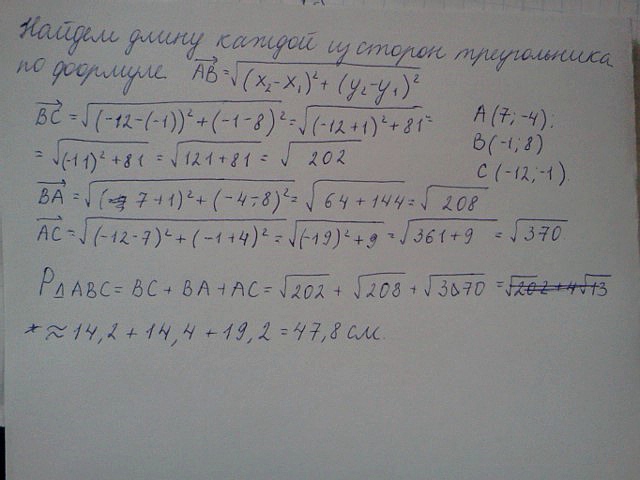 Найдем длину каждой из сторон треугольника
по формуле. AB = √(x₂-x₁)² + (y₂-y₁)²
BC = √(-12-(-1))² + (-1-8)² = √(-12+1)² + 81 =
A(7;-4);
= √(-11)² + 81 = √121+81 = √202
B(-1;8)
C(-12;-1).
BA = √(7+1)² + (-4-8)² = √64+144 = √208
AC = √(-12-7)² + (-1+4)² = √(-19)²+9 = √361+9 = √370.
P△ABC = BC + BA + AC = √202 + √208 + √370 = √202+4√13
* ≈ 14,2 + 14,4 + 19,2 = 47,8 см.